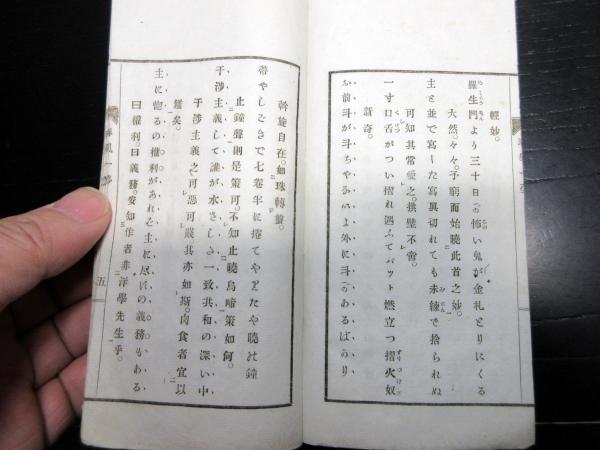 輕妙。
羅生門より三十日の怖い鬼が金札とりにくる
大然。々々。予窮而始曉此首之妙。
主と並で寫した寫眞切れても未練で捨られぬ
可知其常愛之。拱璧不啻。
一寸口舌がつい摺れ過ふてパット燃立つ摺火奴
新奇。
お前斗が斗ちやるいよ外に斗のあるばかり
斡旋自在。如珠轉盤。
帶やしごきで七卷半に捲てやりたや曉の鐘
止鐘聲則是策可。不知止曉烏啼策如何。
干渉主義して誰が水さしよ一致共和の深い中
干渉主義之可惡可戯其亦如斯。肉食者宜以
鑑矣。
主に惚るの權利があれと主に尽すの義務もある
曰權利。曰義務。安知作者非洋學先生乎。
五